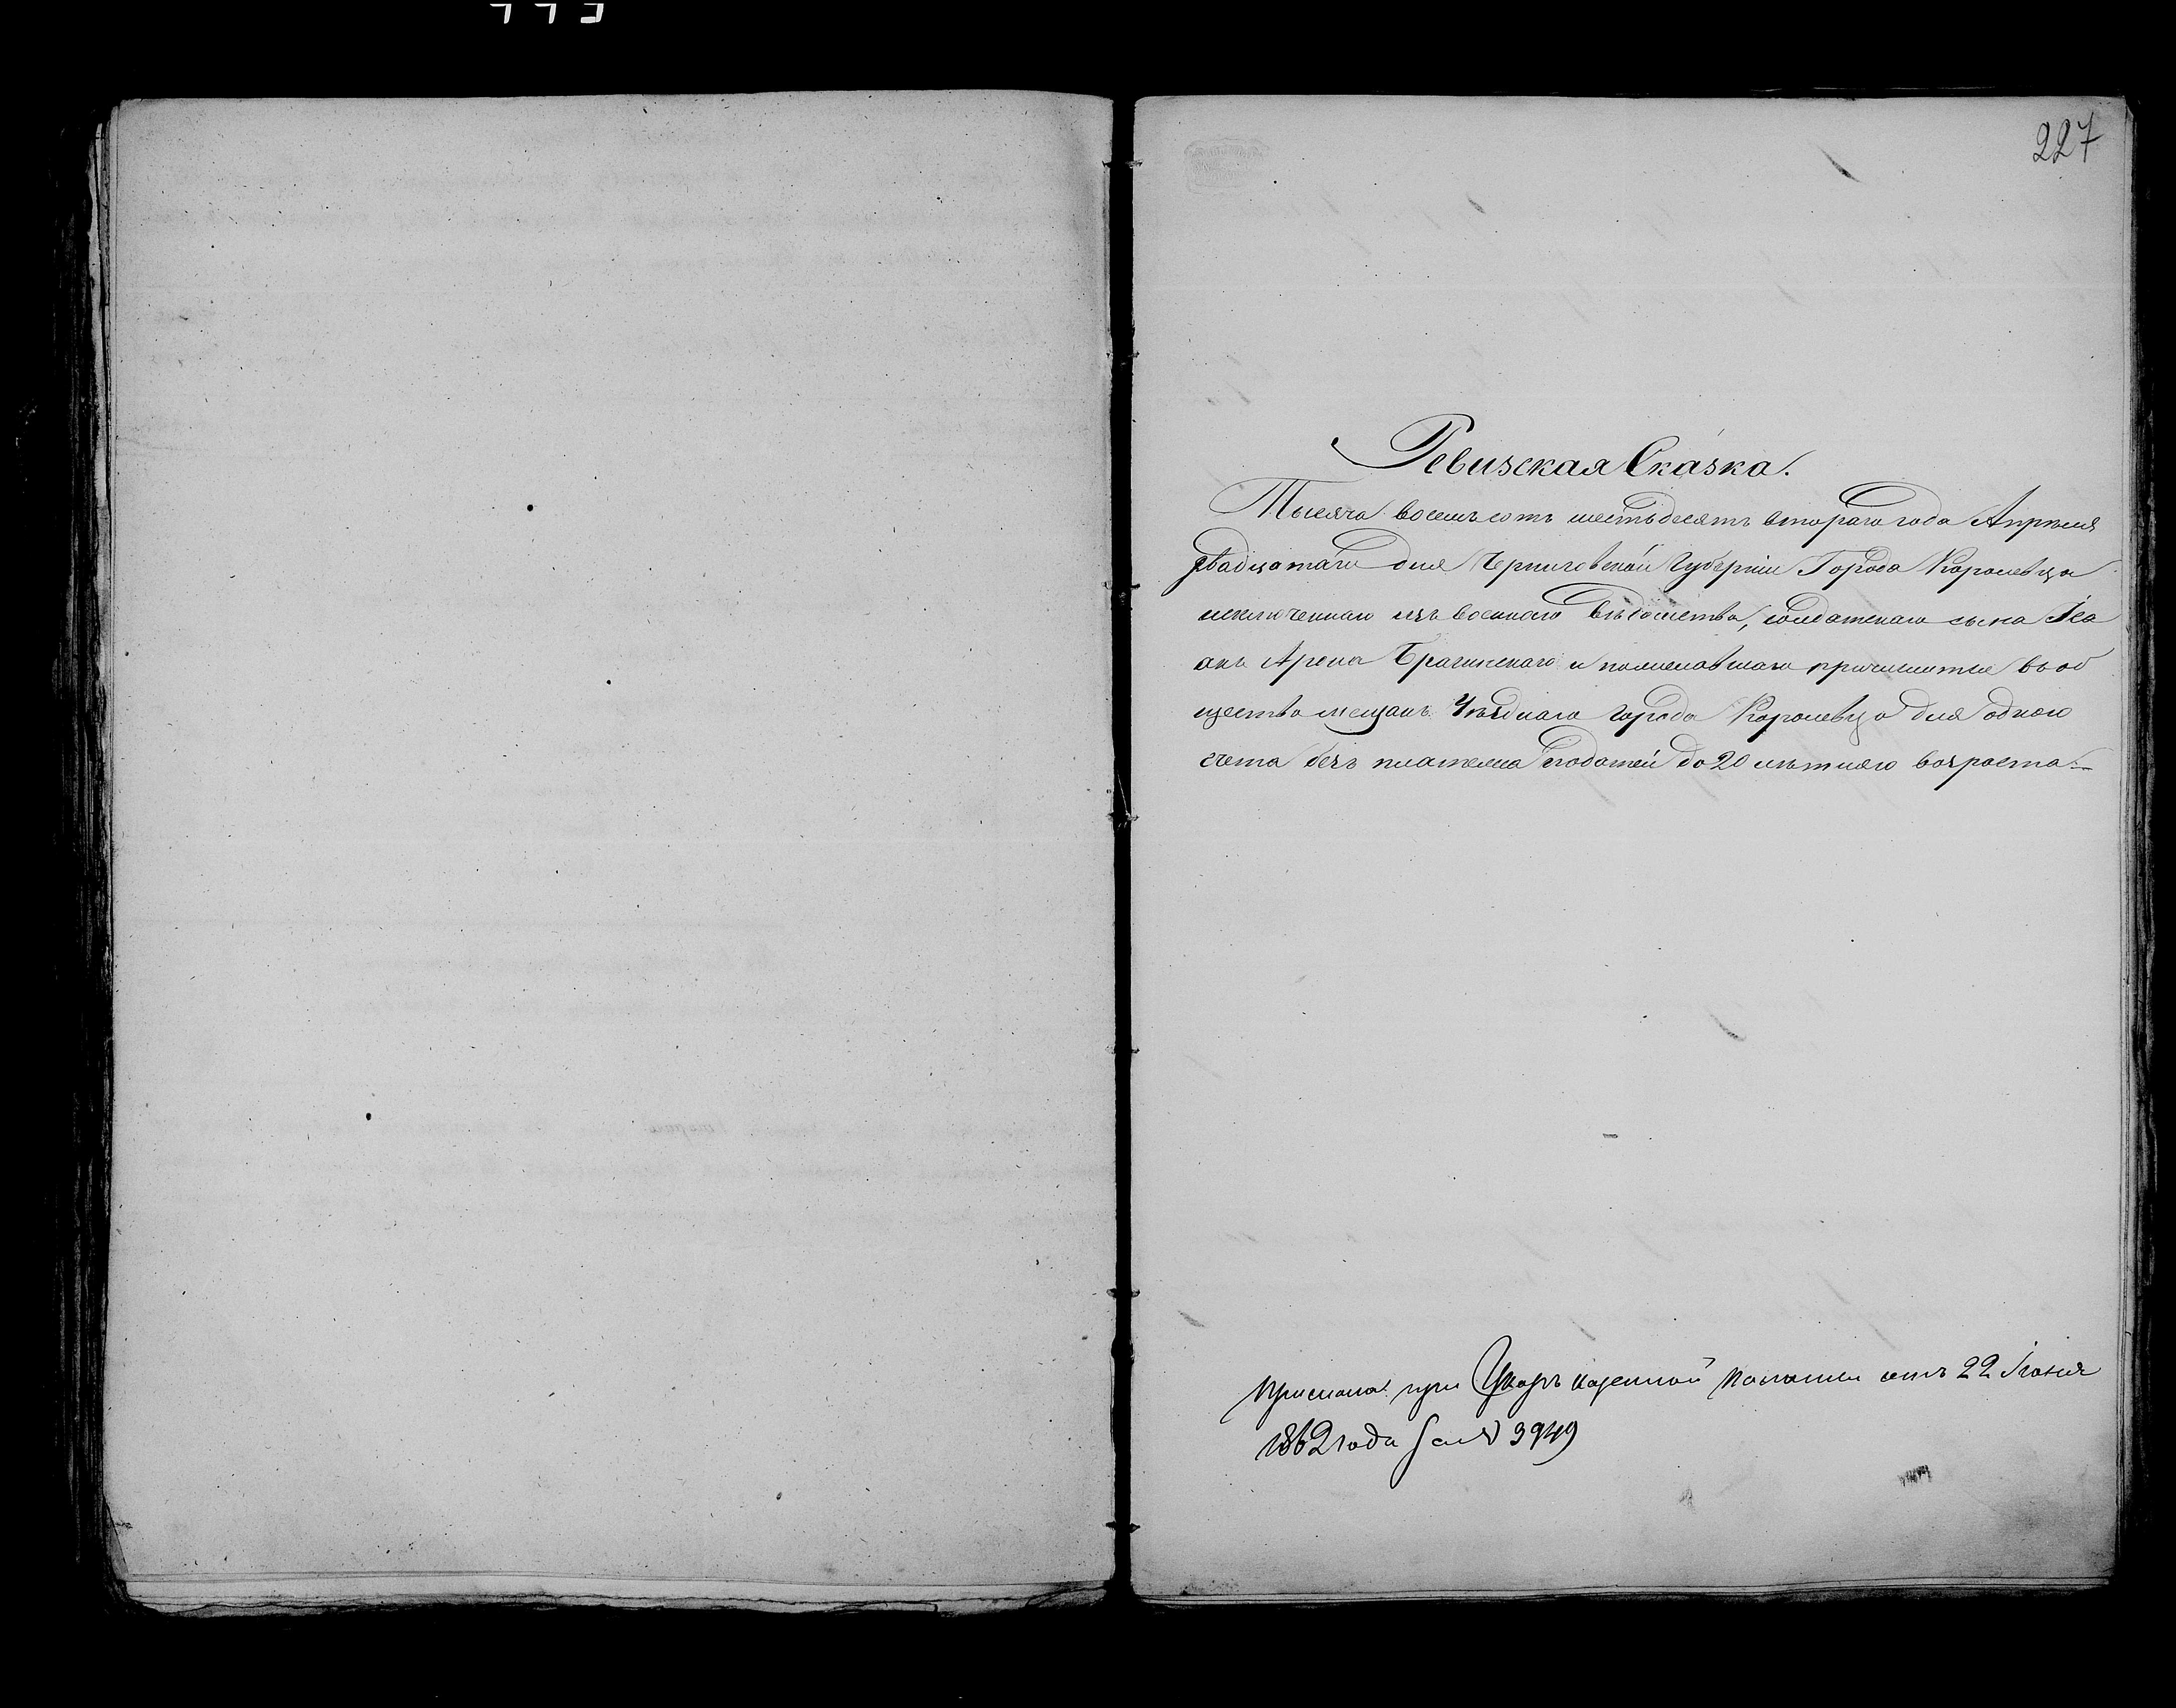 227
Ревизская Сказка.
Тысяча восемьсотъ шестьдесятъ втораго года Апрѣля
двадцатаго дня Черниговской Губерніи Города Кролевца
исключеннаго изъ военнаго вѣдомства, солдатскаго сына
Брагинскаго и пожелавшаго причислится въ об
щество мещанъ Уѣзднаго города Кролевца для одного
счета безъ платежа податей до 20 лѣтняго возраста.
Прислана при Указѣ казенной Палаты отъ 22 Іюня
1862 года за № 3949